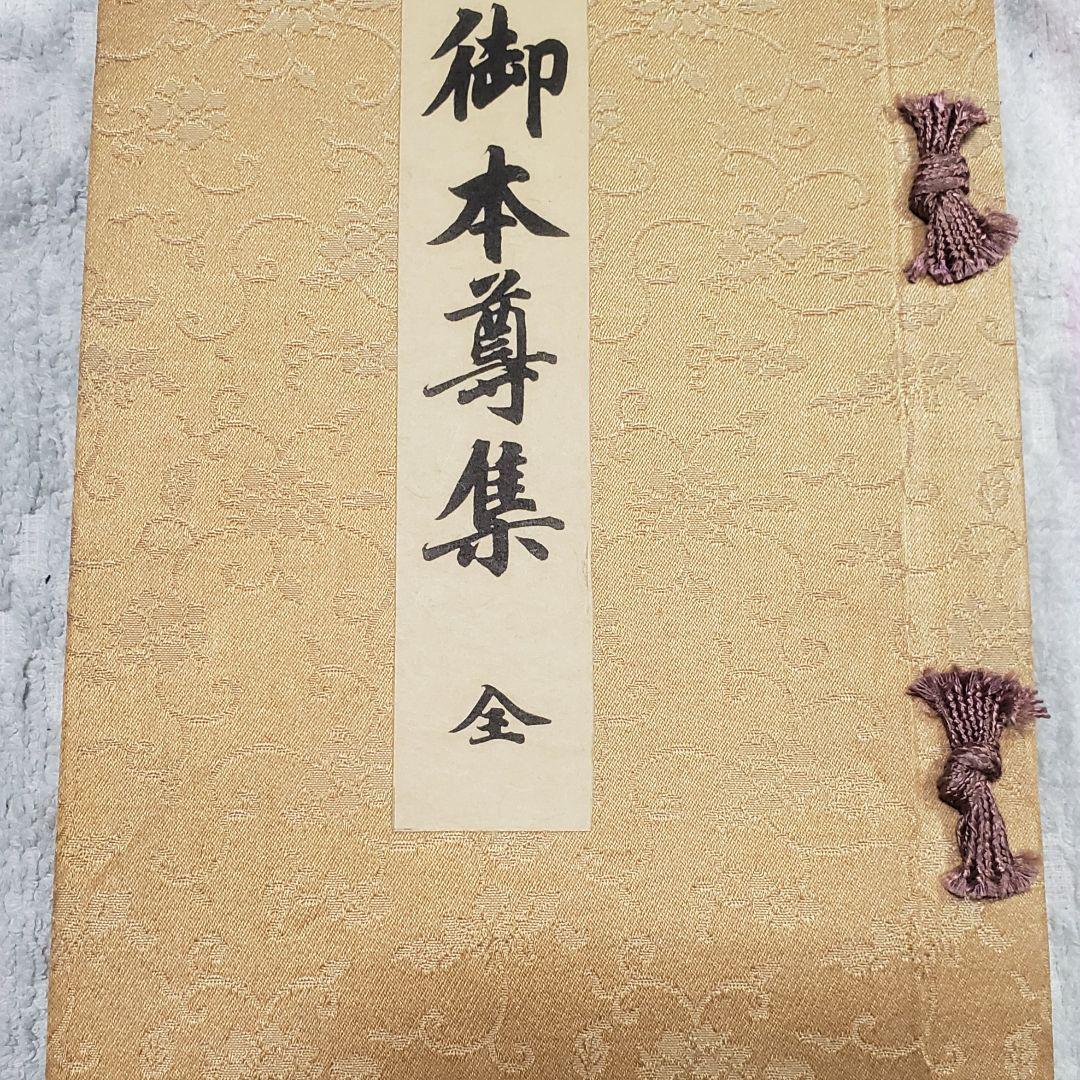 御本尊集 全